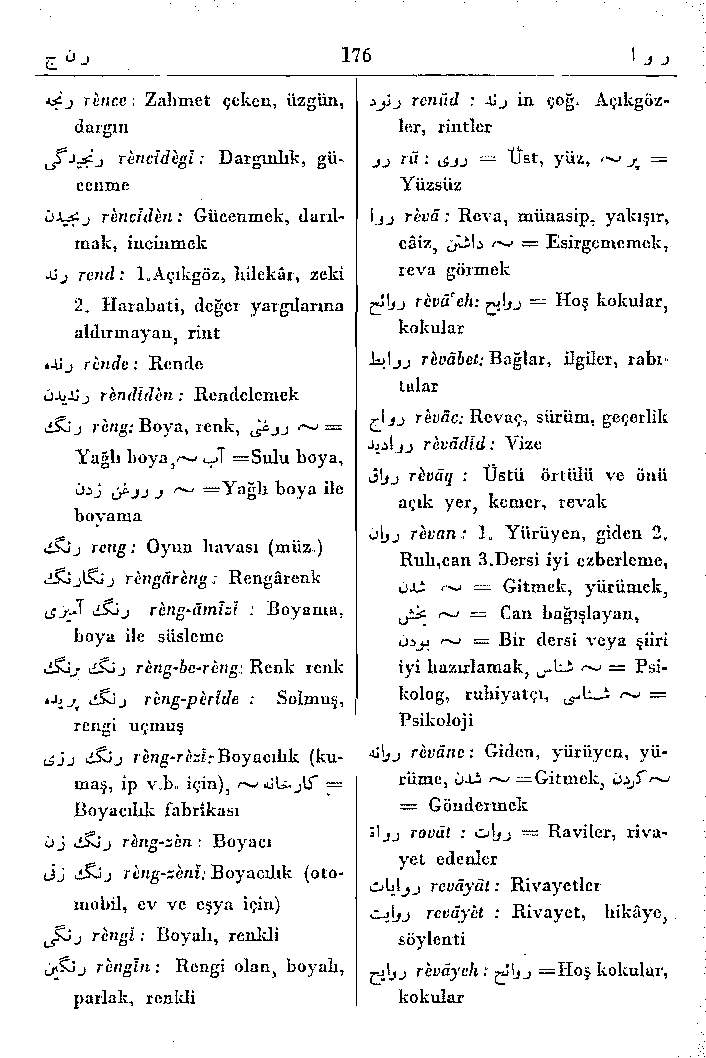 رنج 176 روا
رنجه rènce : Zahmet çeken, üzgün,
dargın
رنجیدگی rèncîdègî : Dargınlık, gü-
cenme
رنجیدن rèncîdèn : Gücenmek, darıl-
mak, incinmek
رند rend : 1.Açıkgöz, hilekâr, zeki
2. Harabati, değer yargılarına
aldırmayan, rint
رنده rènde : Rende
رندیدن rèndîdèn : Rendelemek
رنگ rèng: Boya, renk, روغنی ~ =
Yağlı boya, ~ آب =Sulu boya,
روغن زدن و ~ =Yağlı boya ile
boyama
رنگ reng : Oyun havası (müz.)
رنگارنگ rèngârèng : Rengârenk
رنگ آمیزی rèng-âmîzî : Boyama,
boya ile süsleme
رنگ برنگ rèng-be-rèng: Renk renk
رنگ پریده rèng-pèrîde : Solmuş,
rengi uçmuş
رنگ رزی rèng-rèzî: Boyacılık (ku-
maş, ip v.b. için), ~ کارخانه =
Boyacılık fabrikası
رنگ زن rèng-zèn : Boyacı
رنگ زنی rèng-zènî: Boyacılık (oto-
mobil, ev ve eşya için)
رنگی rèngî : Boyalı, renkli
رنگین rèngîn : Rengi olan, boyalı,
parlak, renkli
رنود renûd : رند in çoğ. Açıkgöz-
ler, rintler
رو rû : روی = Üst, yüz, ~ پر =
Yüzsüz
روا rèvâ : Reva, münasip, yakışır,
câiz, داشتن ~ = Esirgememek,
reva görmek
روائح rèvâ'eh: روایح = Hoş kokular,
kokular
روابط rèvâbet: Bağlar, ilgiler, rabı-
talar
رواج rèvâc: Revaç, sürüm, geçerlik
روادید rèvâdîd : Vize
رواق rèvâq : Üstü örtülü ve önü
açık yer, kemer, revak
روان rèvan : 1. Yürüyen, giden 2.
Ruh,can 3.Dersi iyi ezberleme,
شدن ~ = Gitmek, yürümek,
بخش ~ = Can bağışlayan,
بودن ~ = Bir dersi veya şiiri
iyi hazırlamak, شناس ~ = Psi-
kolog, ruhiyatçı, شناسی ~ =
Psikoloji
روانه rèvâne : Giden, yürüyen, yü-
rüme, شدن ~ =Gitmek, کردن ~
= Göndermek
رواة rovât : روات = Raviler, riva-
yet edenler
روایات revâyât : Rivayetler
روایت revâyèt : Rivayet, hikâye,
söylenti
روایح rèvâyeh : روائح =Hoş kokular,
kokular